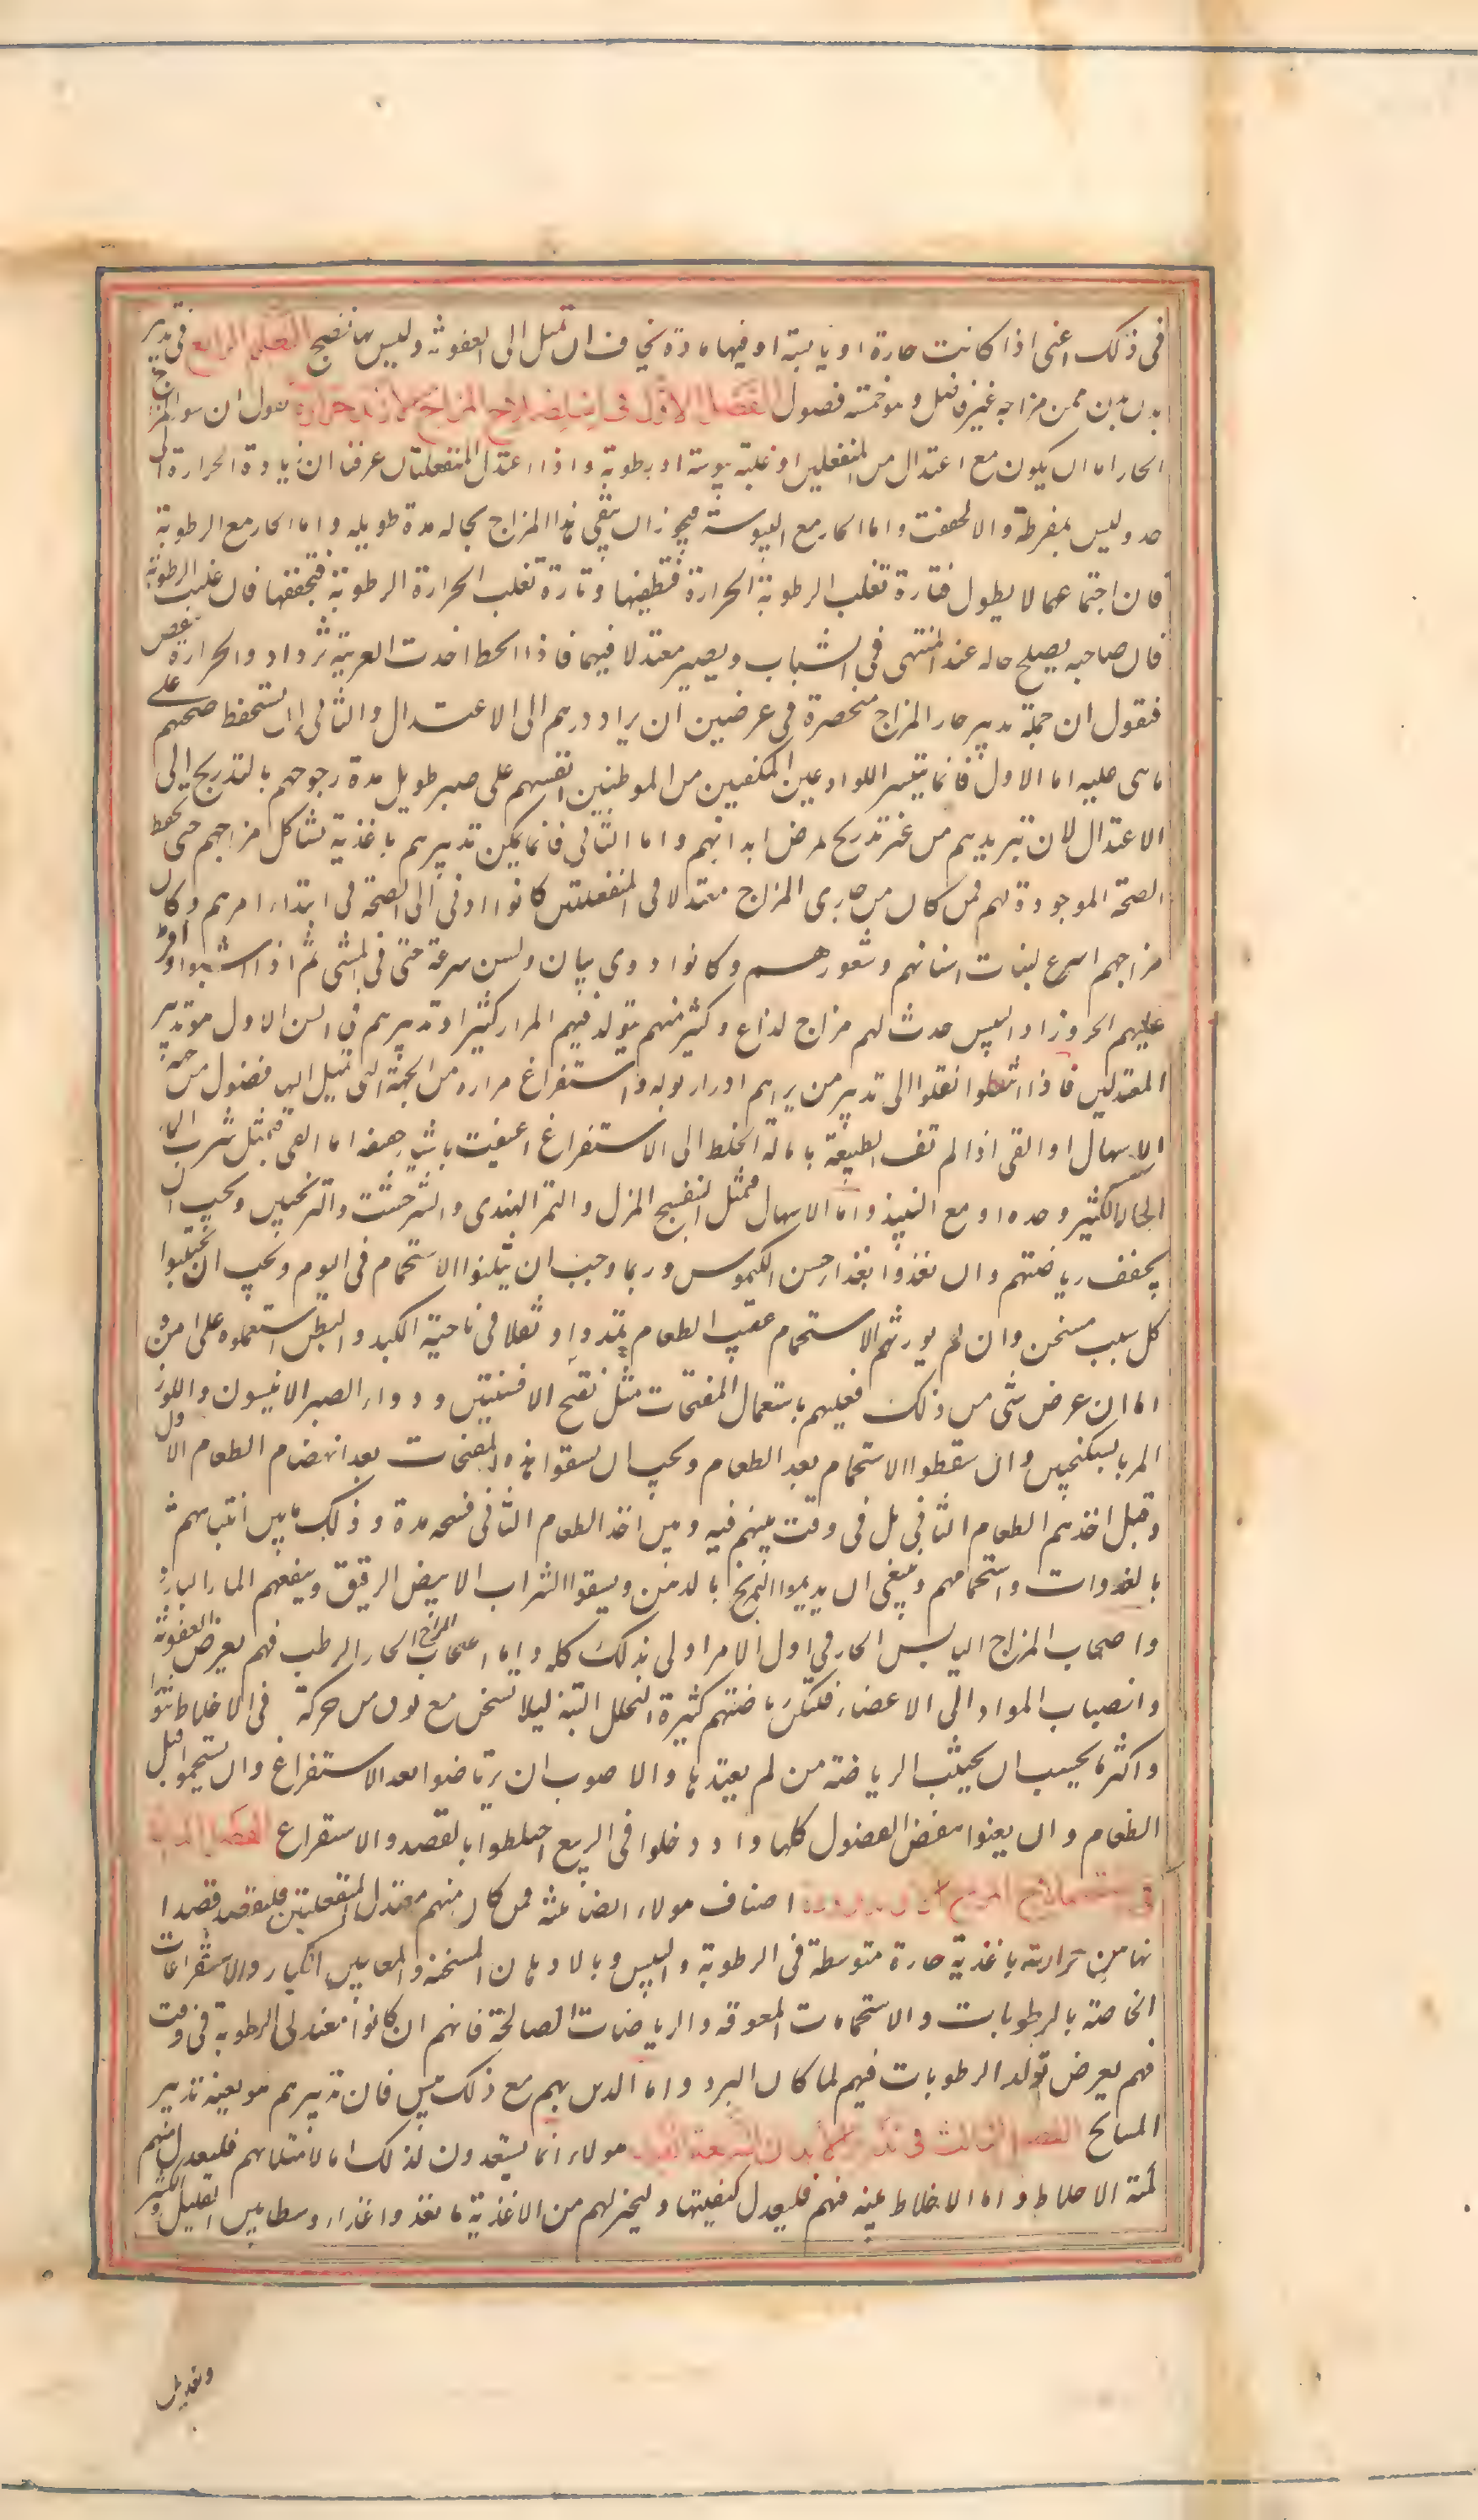 فى ذلك اعنى اذا كانت حارة او يابسة او فيها مادة يخاف ان تميل الى العفونة وليس بها نضج التعليم الرابع فى تدبير
بدن من مزاجه غير فاضل وهو خمسة فصول الفصل الاول فى استصلاح المزاج الازيد حرارة نقول ان سوء المزاج
الحار اما ان يكون مع اعتدال من المنفعلين او غلبة يبوسة او رطوبة واذا اعتدل المنفعلتان عرفنا ان زيادة الحرارة الى
حد وليس بمفرطة والا لجففت واما الحار مع اليبوسة فيجوز ان يبقى هذا المزاج بحاله مدة طويلة واما الحار مع الرطوبة
فان اجتماعهما لا يطول فتارة تغلب الرطوبة الحرارة فتطفيها وتارة تغلب الحرارة الرطوبة فتجففها فان غلبت الرطوبة
فان صاحبه يصلح حاله عند المنتهى فى الشباب ويصير معتدلا فيهما فاذا انحط اخذت الغريبة تزداد والحرارة تنقص
فنقول ان جملة تدبير حار المزاج منحصرة فى غرضين ان يراد ردهم الى الاعتدال والثانى ان تستحفظ صحتهم على
ما هى عليه اما الاول فانما يتيسر للوادعين المكفيين من الموطنين انفسهم على صبر طويل مدة رجوعهم بالتدريج الى
الاعتدال لان تبريدهم من غير تدريج يمرض ابدانهم واما الثانى فانما يمكن تدبيرهم باغذية تشاكل مزاجهم حتى تحفظ
الصحة الموجودة لهم فمن كان من حارى المزاج معتدلا فى المنفعلتين كانوا ادنى الى الصحة فى ابتداء امرهم وكان
مزاجهم اسرع لنبات اسنانهم وشعورهم وكانوا ذوى بيان ولسن سرعة حتى فى المشى ثم اذا اشتبوا وافرط
عليهم الحر وزاد اليبس حدث لهم مزاج لذاع وكثير منهم يتولد فيهم المرار كثيرا وتدبيرهم فى السن الاول هو تدبير
المعتدلين فاذا انتقلوا نقلوا الى تدبير من يرام ادرار بوله واستفراغ مراره من الجهة التى تميل اليها فضول من جهة
الاسهال او القى اذا لم تف الطبيعة بامالة الخلط الى الاستفراغ اعينت باشياء خفيفة اما القى فبمثل شرب الماء
الحار الكثير وحده او مع النبيذ واما الاسهال فبمثل البنفسج المربى والتمر الهندى والشيرخشت والترنجبين ويجب ان
يخفف رياضتهم وان يغذوا بغذاء حسن الكيموس وربما وجب ان يثلثوا الاستحمام فى اليوم ويجب ان يجتنبوا
كل سبب مسخن وان لم يورثهم الاستحمام عقيب الطعام تمددا او ثقلا فى ناحية الكبد والبطن استعملوه على امن و
اما ان عرض شى من ذلك فعليهم باستعمال المفتحات مثل نقيع الافسنتين ودواء الصبر الانيسون واللوز
المر بالسكنجبين وان يسقطوا الاستحمام بعد الطعام ويجب ان يسقوا هذه المفتحات بعد انهضام الطعام الاول
وقبل اخذهم الطعام الثانى بل فى وقت بينهم فيه وبين اخذ الطعام الثانى فسحة مدة وذلك ما بين انتباههم
بالغدوات واستحمامهم وينبغى ان يديموا التمريخ بالدهن ويسقوا الشراب الابيض الرقيق وينفعهم الماء البارد
واصحاب المزاج اليابس الحار فى اول الامر اولى بذلك كله واما اصحاب المزاج الحار الرطب فهم بعرض العفونة
وانصباب المواد الى الاعضاء فلتكن رياضتهم كثيرة التحلل لينة لئلا تسخن مع توق من حركة فى الاخلاط تثورا
واكثر ما يجب ان يجتنب الرياضة من لم يعتدها والاصوب ان يرتاضوا بعد الاستفراغ وان يستحموا قبل
الطعام وان يعنوا بنفض الفضول كلها واذا دخلوا فى الربيع احتاطوا بالفصد والاستفراغ الفصل الثانى
فى استصلاح المزاج اصناف هولاء ايضا ثلثة فمن كان منهم معتدل المنفعلتين فليقصد قصدا
نهامين حرارته باغذية حارة متوسطة فى الرطوبة واليبس وبالادهان المسخنة والمعاجين الكبار والاستفراغات
الخاصة بالرطوبات والاستحمامات المعرقة والرياضات الصالحة فانهم ان كانوا معتدلى الرطوبة فى وقت
فهم بعرض تولد الرطوبات فيهم لمكان البرد واما الذين بهم مع ذلك يبس فان تدبيرهم هو بعينه تدبير
المشايخ الفصل الثالث فى تدبير الابدان السريعة القبول هولاء انما يستعدون لذلك اما لامتلائهم فليعدل منهم
كمية الاخلاط واما الاخلاط نية فيهم فليعدل كيفيتها وليختر لهم من الاغذية ما يغذوا غذاء وسطا بين القليل والكثير
وتعديل